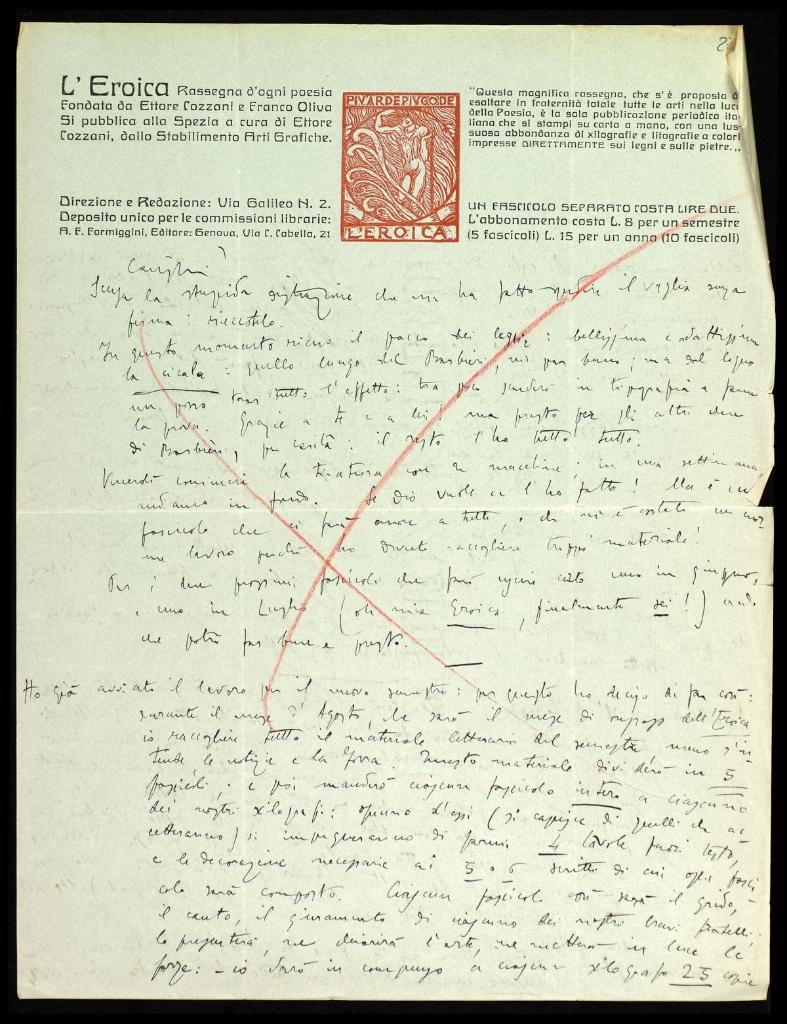 2
L'Eroica Rassegna d'ogni poesia
Fondata da Ettore Cozzani e Franco Oliva
Si pubblica alla Spezia a cura di Ettore
Cozzani, dallo Stabilimento Arti Grafiche.
Direzione e Redazione: Via Galileo N. 2.
Deposito unico per le commissioni librarie:
A. F. Formiggini, Editore: Genova, Via C. Cabella, 21
PIVARDEPIVGODE
L'EROICA
"Questa magnifica rassegna, che s'è proposta d
esaltare in fraternità totale tutte le arti nella luce
della Poesia, è la sola pubblicazione periodica ita-
liana che si stampi su carta a mano, con una lus-
suosa abbondanza di xilografie e litografie a colori
impresse DIRETTAMENTE sui legni e sulle pietre.,,
UN FASCICOLO SEPARATO COSTA LIRE DUE.
L'abbonamento costa L. 8 per un semestre
(5 fascicoli) L. 15 per un anno (10 fascicoli)
Scusa la stupida distrazione che mi ha fatto spedire il vaglia senza
firma: rieccotelo.
In questo momento ricevo il pacco dei legni: bellissima e adattissima
la cicala: quello lungo del Barbieri, mi par buono; ma dal legno
non posso trar tutto l'effetto: tra poco scenderò in tipografia a farne
la prova. Grazie a te e a lui! ma presto per gli altri due
di Barbieri, per carità: il resto l'ho tutto tutto.
Venerdì comincia la tiratura con 2 macchine; in una settimana
andiamo in fondo. Se Dio vuole ce l'ho fatta! Ma è un
fascicolo che ci farà onore a tutti, e che mi è costato un
lavoro perchè ho dovuto raccogliere troppo materiale!
Per i due prossimi fascicoli che farò uscire certo uno in giugno,
e uno in Luglio (oh mia Eroica, finalmente sei!) credo
che potrò far bene e presto.
Ho già avviato il lavoro per il nuovo semestre: per questo ho deciso di far così:
durante il mese d'Agosto, che sarà il mese di riposo dell'Eroica
io raccoglierò tutto il materiale letterario del semestre meno s'in-
tende le notizie e la Questo materiale dividerò in 5
fascicoli; e poi manderò ciascun fascicolo intero a ciascuno
dei nostri xilografi: ognuno d'essi (si capisce di quelli che ac-
cetteranno) si impegneranno di farmi 4 tavole fuori testo,
e le decorazioni necessarie ai 5 o 6 scritti di cui ogni fasci-
colo sarà composto. Ciascun fascicolo così sarà il grido,
il canto, il giuramento di ciascuno dei nostri bravi fratelli:
lo presenterà, ne chiarirà l'arte, ne metterà in luce le
forze: - io darò in compenso a ciascun xilografo 25 copie